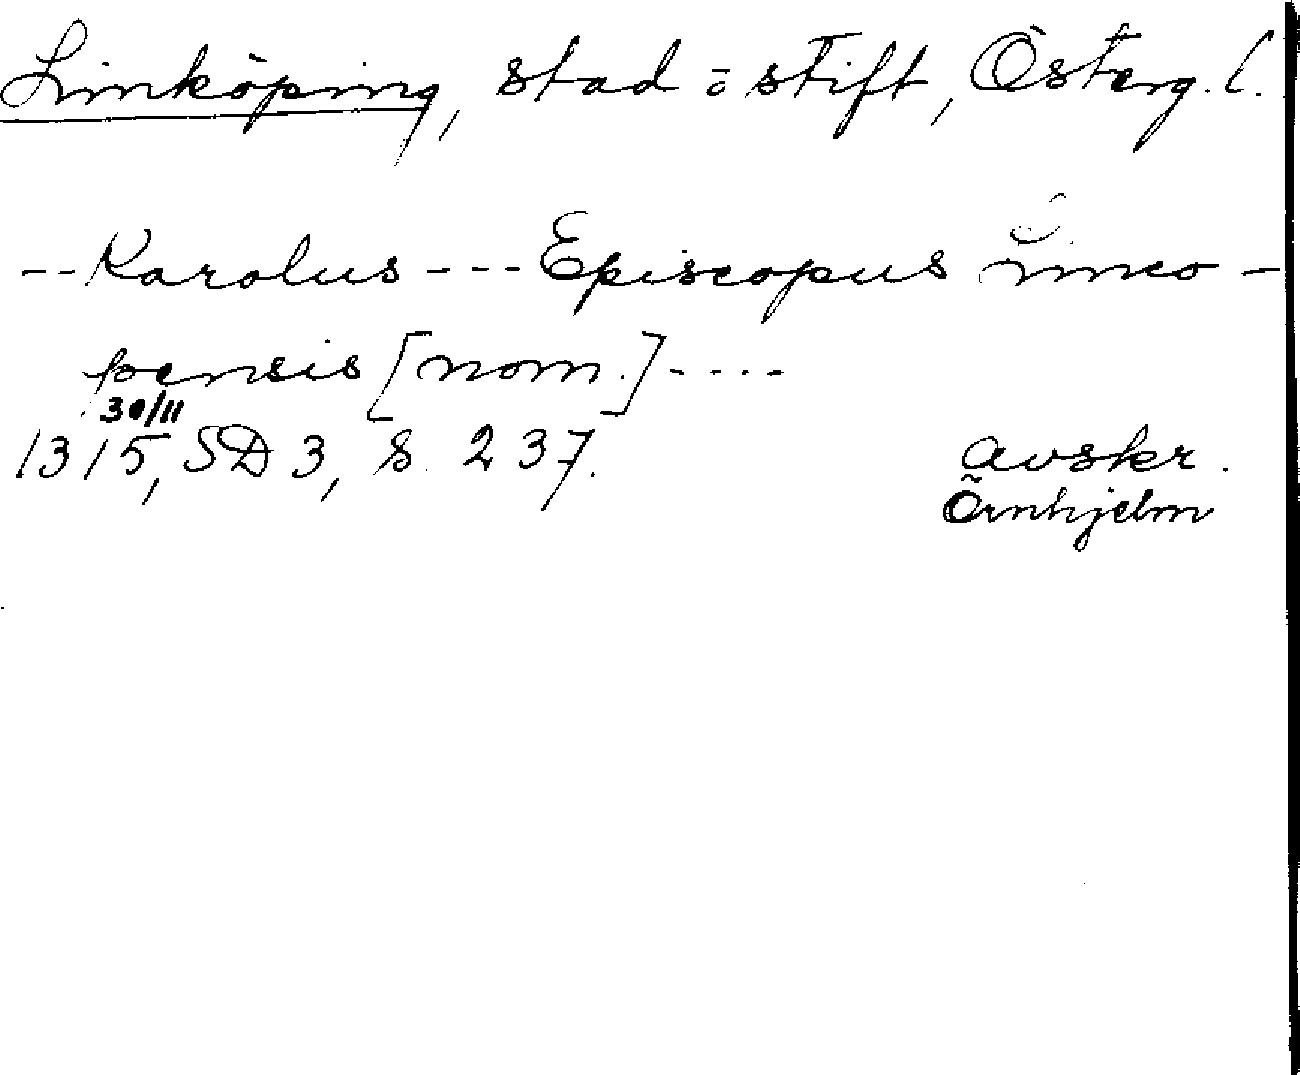 Linköping, stad o stift, Österg. l.
-- Karolus --- Episcopus Linco-
pensis [nom.] ----
30/11
1315, SD 3, s. 237. avskr.
Örnhjelm